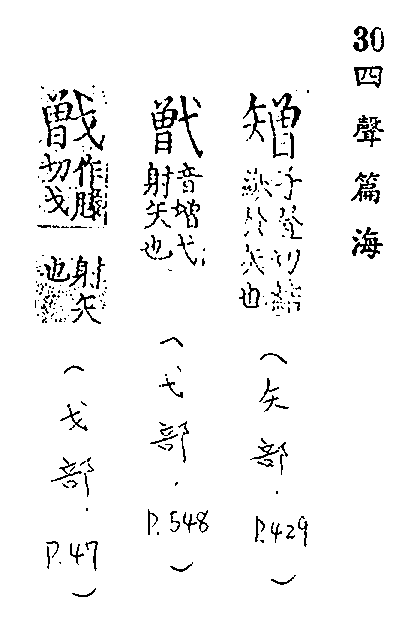 30四聲篇海
矰
子登切結
於矢也
（矢部.P.429）
音增弋
射矢也
（弋部.P.548）
作滕
切戈
射矢
也
（戈部.P.47）